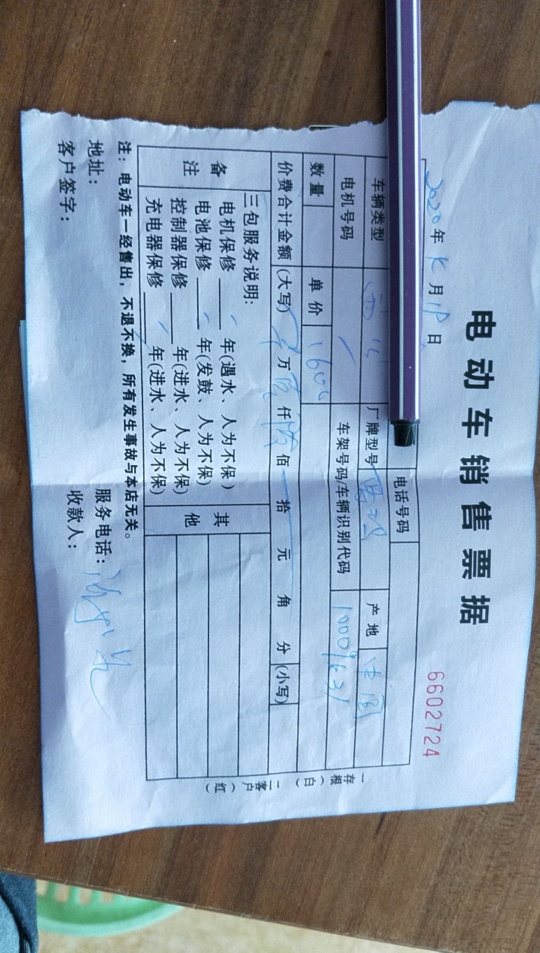 电动车销售票据
6602724
2020年 月 日
电话号码
车辆类型 厂牌型号 产地 中国
电机号码 车架号码/车辆识别代码
数量 单价 1600
价费合计金额 (大写) 万 仟 陆 佰 拾 元 角 分 (小写)
备注
三包服务说明:
电机保修 年(遇水、人为不保)
电池保修 年(发鼓、人为不保)
控制器保修 年(进水、人为不保)
充电器保修 年(进水、人为不保)
其他
注:电动车一经售出,不退不换,所有发生事故与本店无关。
地址: 服务电话:
客户签字: 收款人:
一存根(白) 二客户(红)